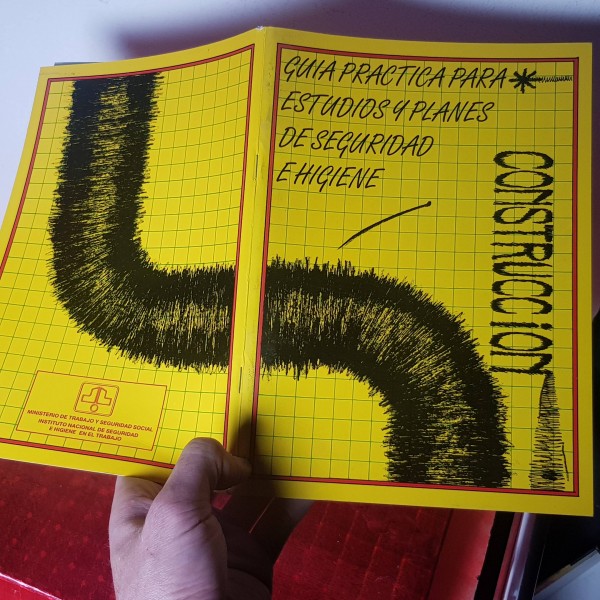 GUIA PRACTICA PARA
ESTUDIOS Y PLANES
DE SEGURIDAD
E HIGIENE
CONSTRUCCION
MINISTERIO DE TRABAJO Y SEGURIDAD SOCIAL
INSTITUTO NACIONAL DE SEGURIDAD
E HIGIENE EN EL TRABAJO